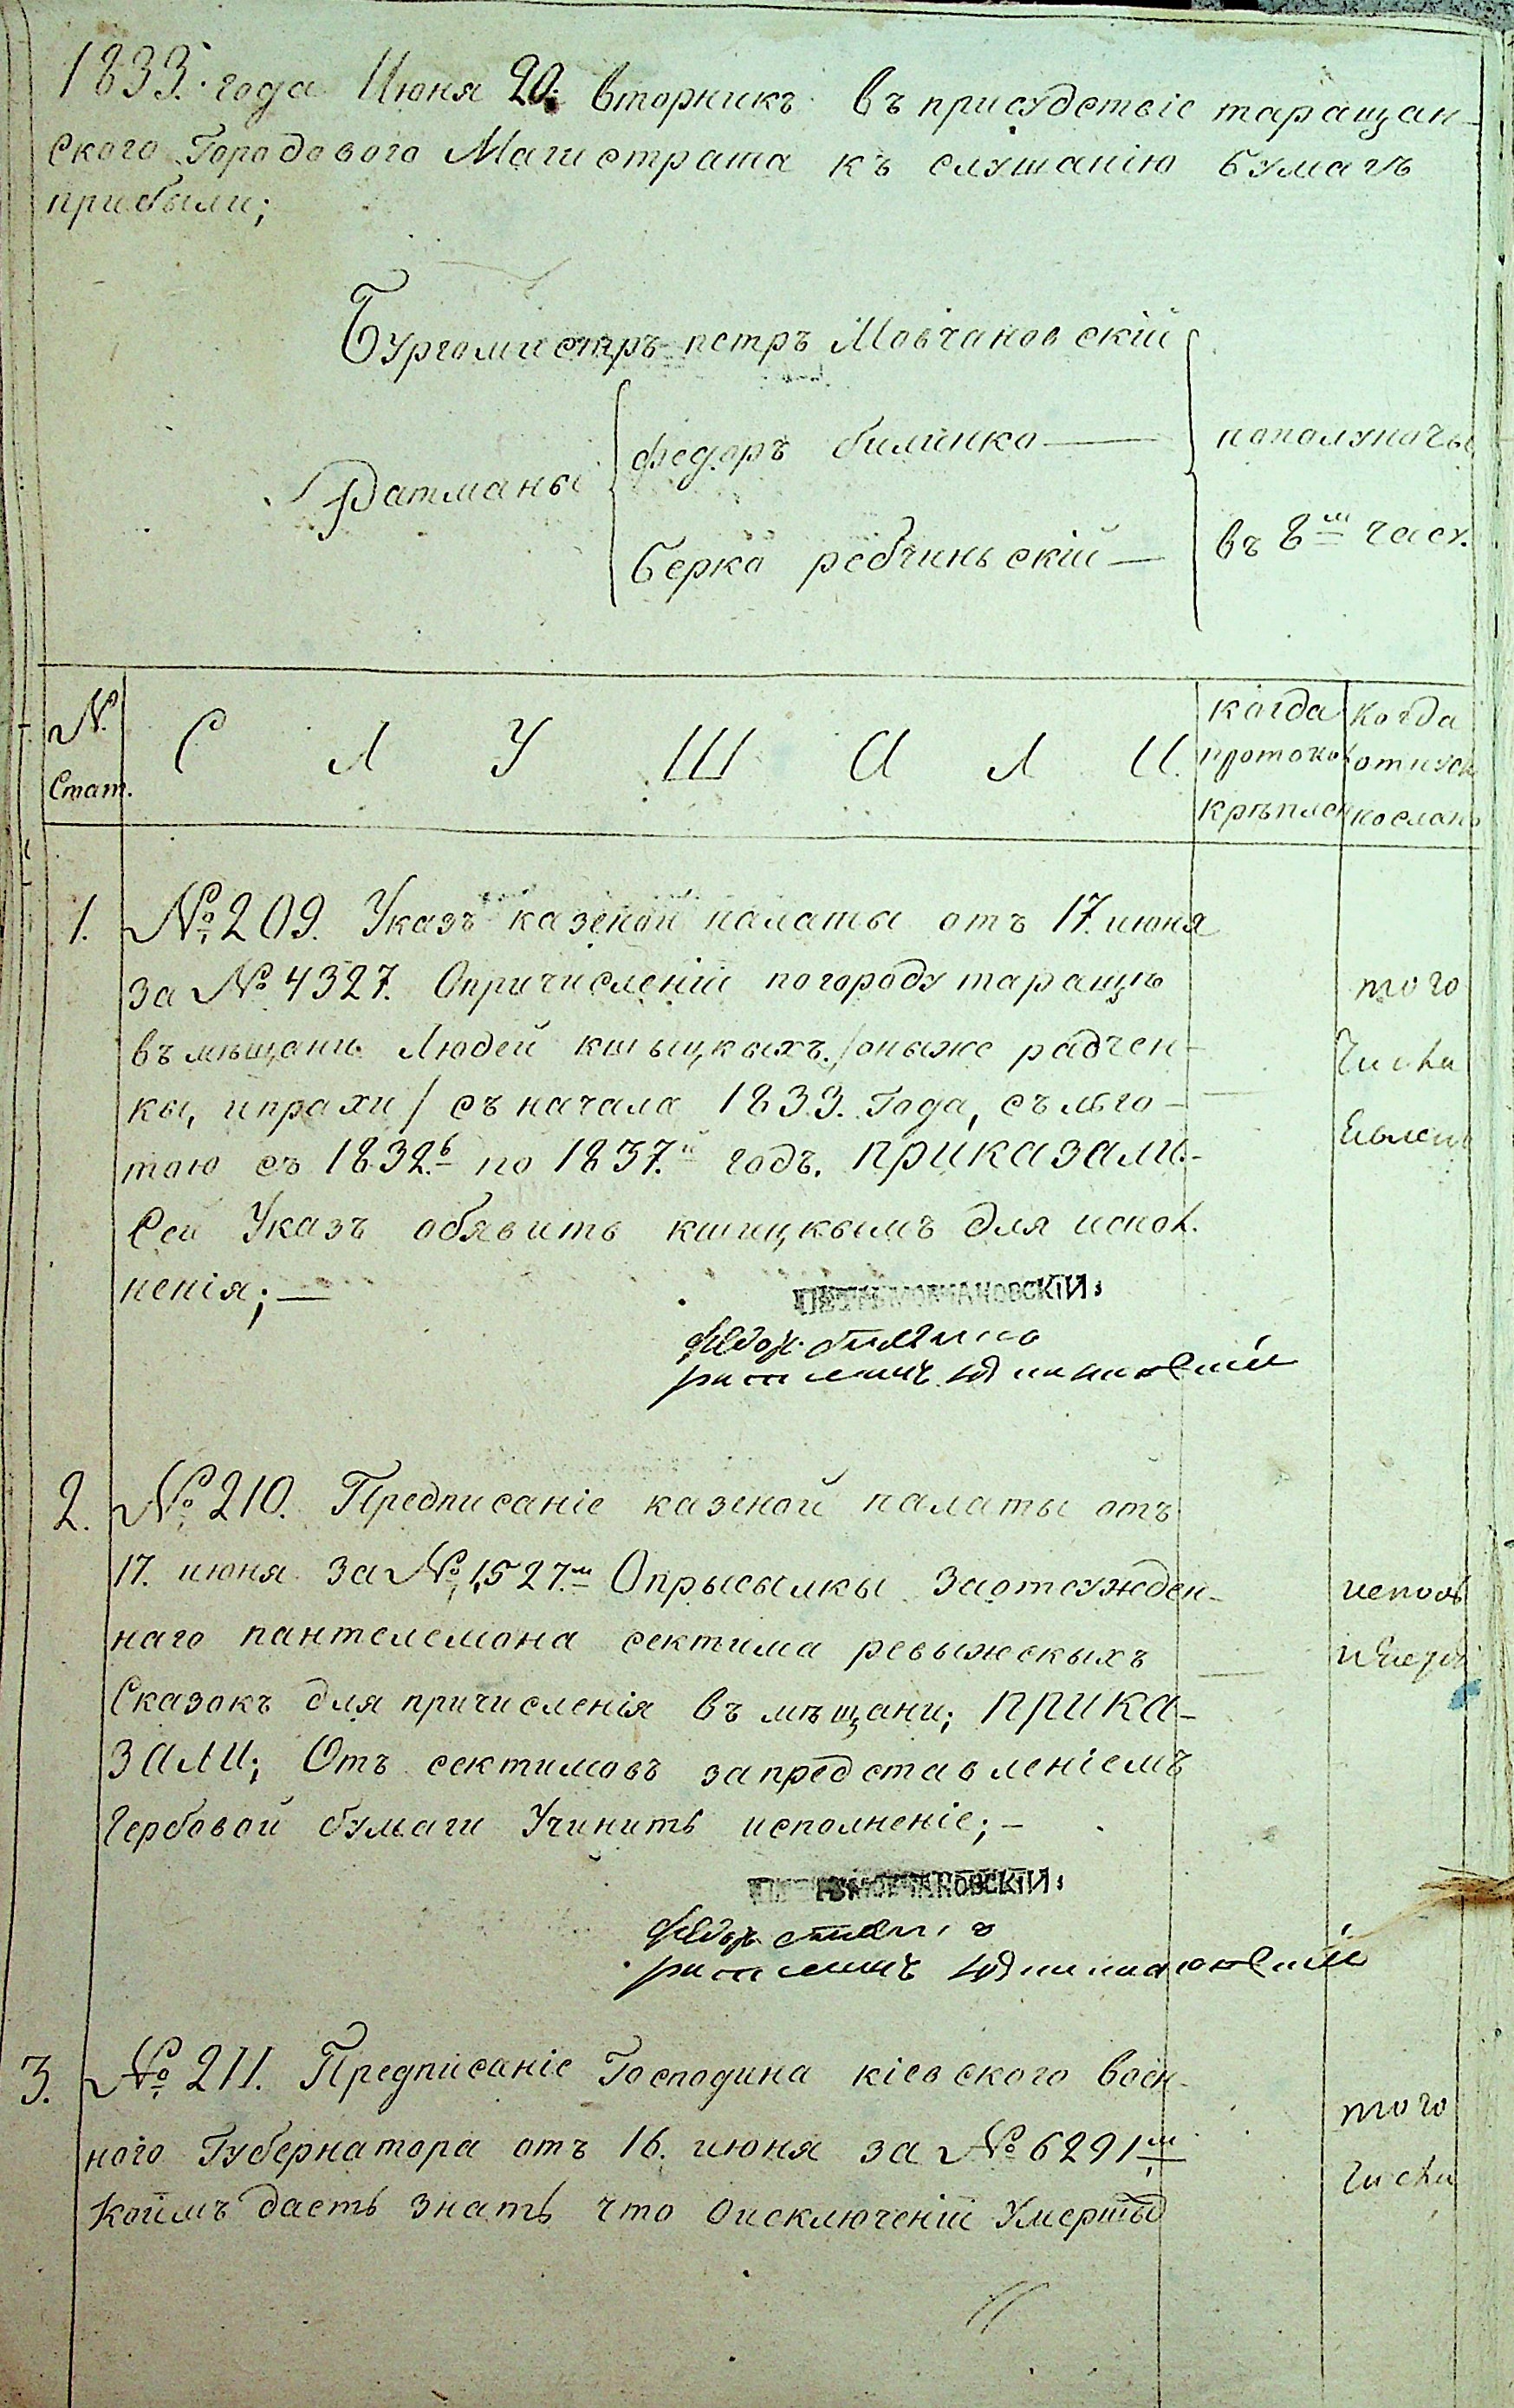 1833. года Июня 20. вторникъ въ присудствіе таращан-
ского Городового Магистрата къ слушанію бумагъ
прибыли;
Бургомистръ петръ Мовчановскій
Ратманы
федоръ билинко —
берко рабчиньскій —
пополуночы
въ 8м часу.
№ Стат.
С Л У Ш А Л И.
когда протокол крѣплен
когда отпуск посланъ
1. № 209. Указъ казеной палаты отъ 17. июня
за № 4327. Опричисленіи погороду таращѣ
въ мѣщани Людей кшыцкыхъ. /оныже радчен-
кы, ипрахи/ съ начала 1833. Года, съ льго-
тою съ 1832. по 1837.й годъ. приказали.-
Сей Указъ обявить кшицкымъ для испол.
ненія; —
того
Числа
ПЕТРЪ МОВЧАНОВСКІЙ:
федор
2. № 210. Предписаніе казеной палаты отъ
17. июня за № 1527.м Опрысылкы Заотсужден-
наго пантелемона сектима ревыжскыхъ
Сказокъ для причисленія въ мѣщани; прика-
зали; Отъ сектимовъ запредставленіемъ
Гербовой бумаги Учинить исполненіе; -
ПЕТРЪ МОВЧАНОВСКІЙ:
федор
3. № 211. Предписаніе Господина кіевского воен-
ного Губернатора отъ 16. июня за № 6291м
Коимъ даетъ знать что оисключеніи Умершы
того
Числа